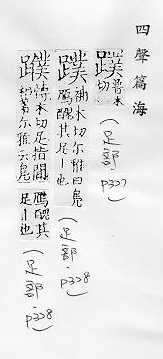 四聲篇海
蹼 普木切
(足部·p327)
蹼 補木切尔雅曰鳧
鴈醜其足丨也
(足部·p328)
蹼 木切足指間
尔雅云鳧
鴈醜其
足丨也
(足部·p328)